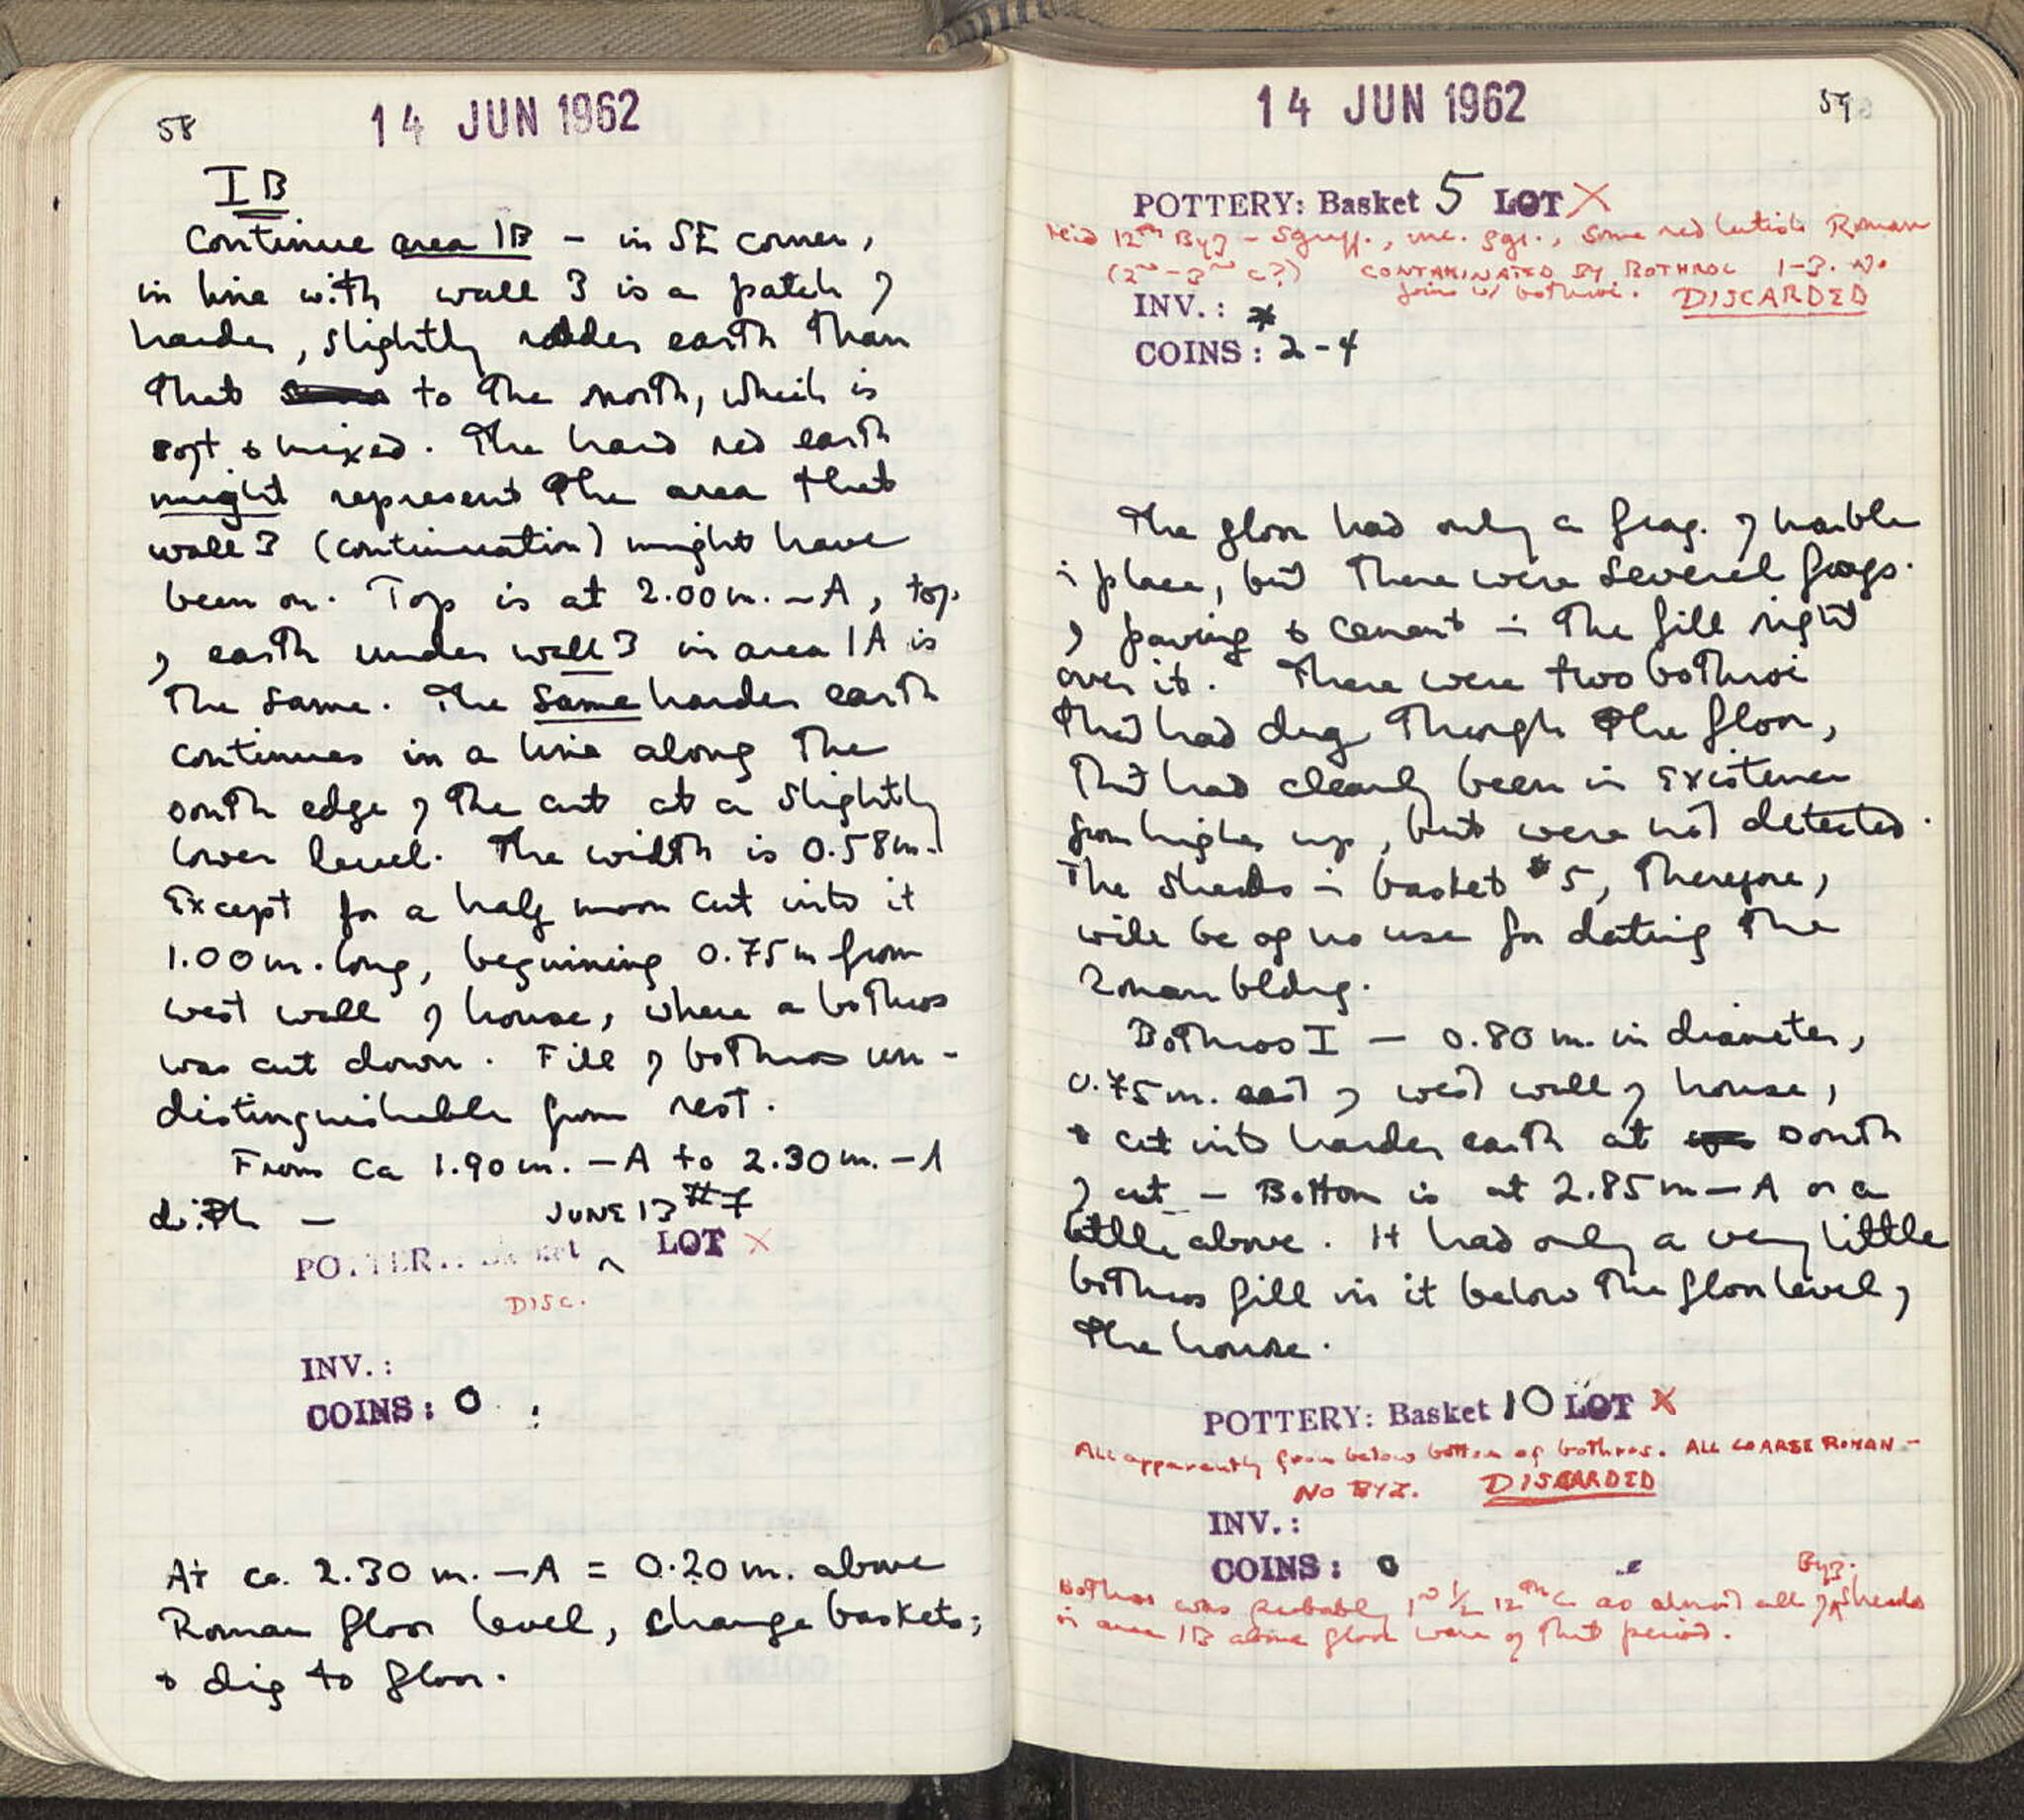 58
14 JUN 1962
IB
Continue area 1B – in SE corner,
in line with wall 3 is a patch of
harder, slightly redder earth than
that to the north, which is
soft & mixed. The hard red earth
might represent the area that
wall 3 (continuation) might have
been on. Top is at 2.00 m. – A, top
of earth under wall 3 in area 1A is
the same. The same harder earth
continues in a line along the
south edge of the cut at a slightly
lower level. The width is 0.58 m.
Except for a half moon cut into it
1.00 m. long, beginning 0.75 m from
west wall of house, where a bothros
was cut down. Fill of bothros un-
distinguishable from rest.
From ca 1.90 m. – A to 2.30 m. – A
dith –
JUNE 13 #7
POTTERY: Basket ^ LOT X
DISC.
INV.:
COINS: 0
At ca. 2.30 m. – A = 0.20 m. above
Roman floor level, change baskets;
& dig to floor.
59
14 JUN 1962
POTTERY: Basket 5 LOT X
Mid 12th Byz – Sgraff., inc. sgr., some red Roman
(2nd – 3rd c?) CONTAMINATED BY BOTHROI 1–3. No
joins w/ bothroi. DISCARDED
INV.:
COINS: 2-4
The floor had only a frag. of marble
in place, but there were several frags.
of paving & cement in the fill right
over it. There were two bothroi
that had dug through the floor,
that had clearly been in existence
from higher up, but were not detected.
The sherds in basket #5, therefore,
will be of no use for dating the
Roman bldg.
Bothros I – 0.80 m. in diameter,
0.75 m. east of west wall of house,
& cut into harder earth at south
of cut – Bottom is at 2.85 m – A or a
little above. It had only a very little
bothros fill in it below the floor level of
the house.
POTTERY: Basket 10 LOT X
All apparently from below bottom of bothros. ALL COARSE ROMAN –
NO BYZ. DISCARDED
INV.:
COINS: 0
Bothros was probably 1st ½ 12th c. as almost all of ^ Byz. sherds
in area 1B above floor were of that period.